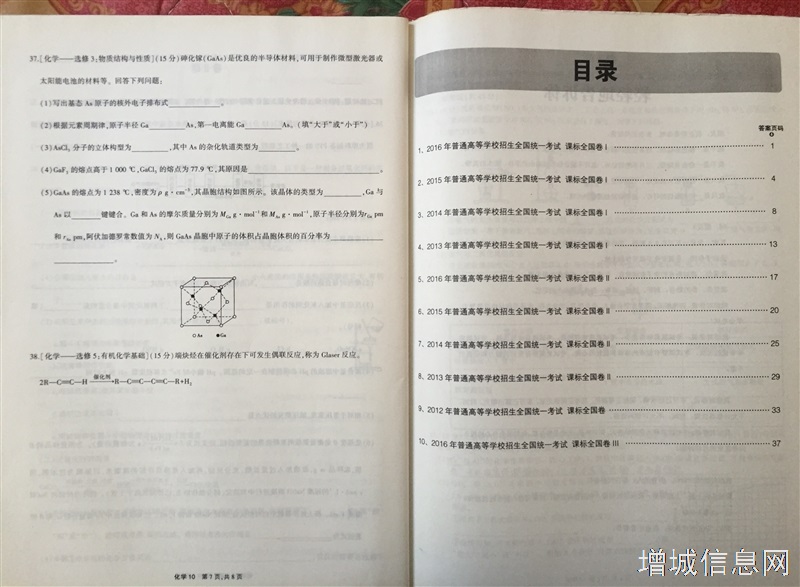 37.[化学——选修3:物质结构与性质](15分)砷化镓(GaAs)是优良的半导体材料,可用于制作微型激光器或
太阳能电池的材料等。回答下列问题:
(1)写出基态As原子的核外电子排布式________。
(2)根据元素周期律,原子半径Ga________As,第一电离能Ga________As。(填“大于”或“小于”)
(3)AsCl₃分子的立体构型为________,其中As的杂化轨道类型为________。
(4)GaF₃的熔点高于1 000 ℃,GaCl₃的熔点为77.9 ℃,其原因是________。
(5)GaAs的熔点为1 238 ℃,密度为ρ g·cm⁻³,其晶胞结构如图所示。该晶体的类型为________,Ga与
As以________键键合。Ga和As的摩尔质量分别为M_Ga g·mol⁻¹和M_As g·mol⁻¹,原子半径分别为r_Ga pm
和r_As pm,阿伏加德罗常数值为N_A,则GaAs晶胞中原子的体积占晶胞体积的百分率为________
________。
○As ●Ga
38.[化学——选修5:有机化学基础](15分)端炔烃在催化剂存在下可发生偶联反应,称为Glaser反应。
催化剂
2R—C≡C—H ⟶R—C≡C—C≡C—R+H₂
化学10 第7页,共8页
目录
答案页码
1、2016年普通高等学校招生全国统一考试 课标全国卷Ⅰ 1
2、2015年普通高等学校招生全国统一考试 课标全国卷Ⅰ 4
3、2014年普通高等学校招生全国统一考试 课标全国卷Ⅰ 8
4、2013年普通高等学校招生全国统一考试 课标全国卷Ⅰ 13
5、2016年普通高等学校招生全国统一考试 课标全国卷Ⅱ 17
6、2015年普通高等学校招生全国统一考试 课标全国卷Ⅱ 20
7、2014年普通高等学校招生全国统一考试 课标全国卷Ⅱ 25
8、2013年普通高等学校招生全国统一考试 课标全国卷Ⅱ 29
9、2012年普通高等学校招生全国统一考试 课标全国卷 33
10、2016年普通高等学校招生全国统一考试 课标全国卷Ⅲ 37
增城信息网